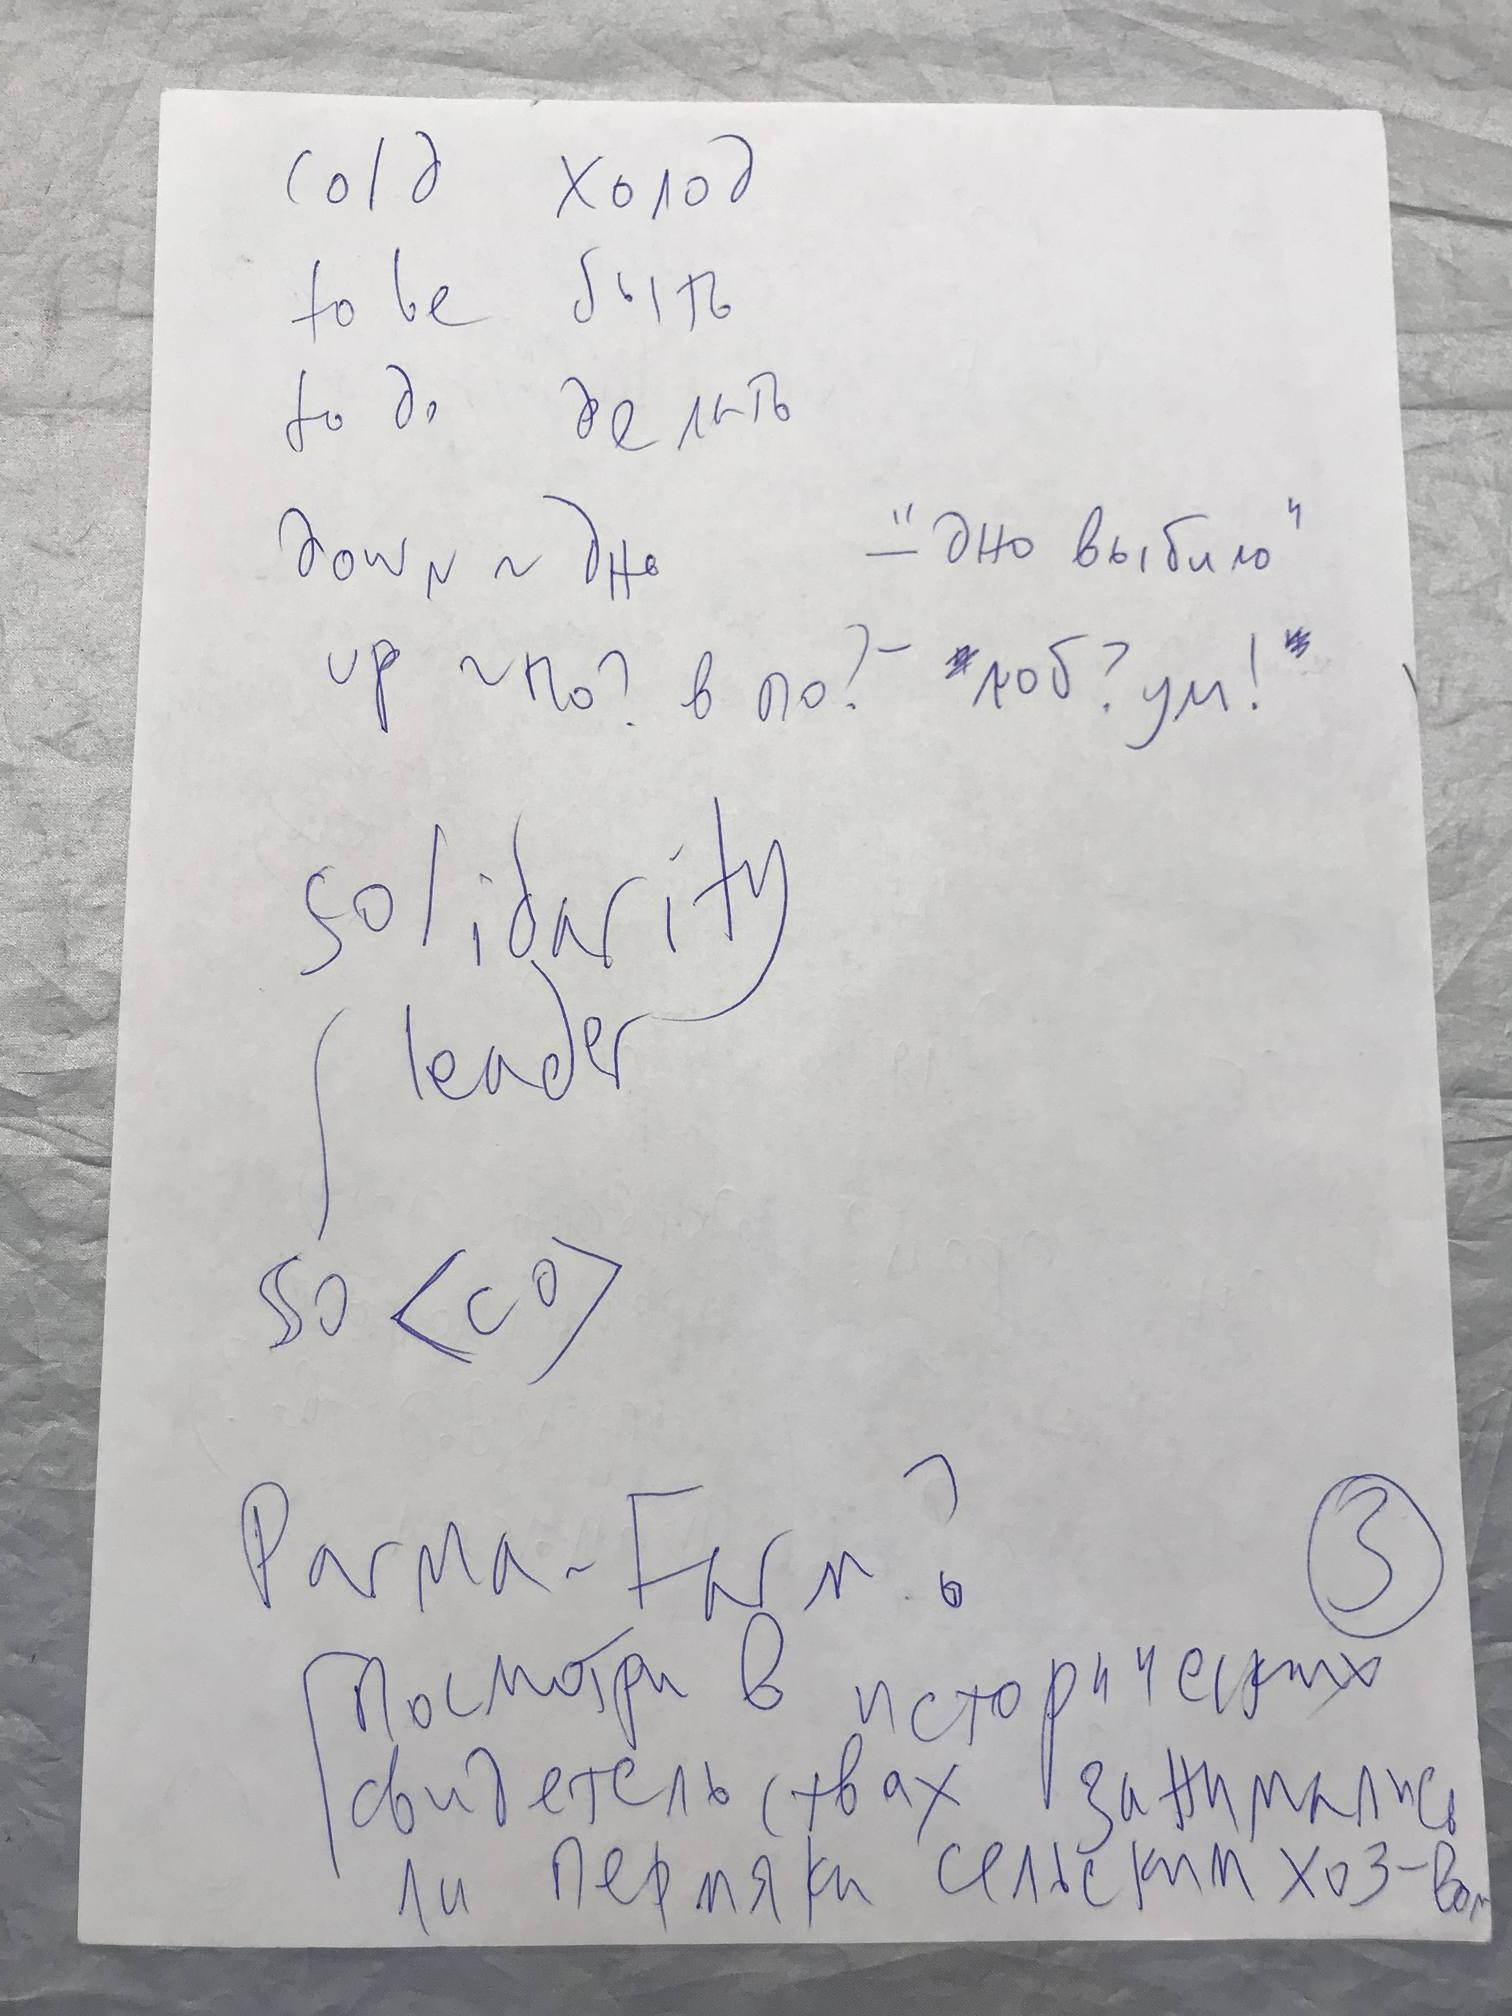 cold холод
to be быть
to do делать
down ~ дно — "дно выбило"
up ~ по? в по? - лоб? ум!
solidarity
leader
so <co>
Parma-Farm?
3
Посмотри в исторических
свидетельствах занимались
ли пермяки сельским хоз-вом